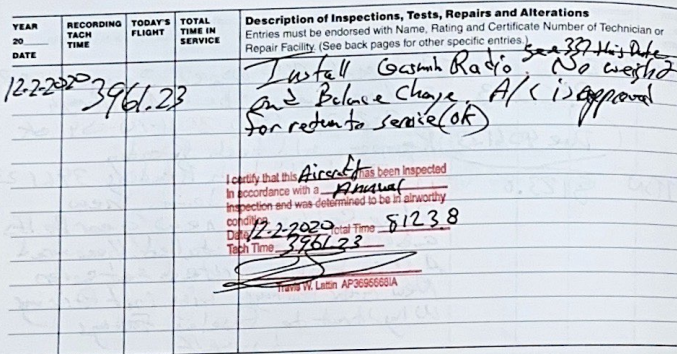 YEAR
20___
DATE
RECORDING
TACH
TIME
TODAY'S
FLIGHT
TOTAL
TIME IN
SERVICE
Description of Inspections, Tests, Repairs and Alterations
Entries must be endorsed with Name, Rating and Certificate Number of Technician or
Repair Facility. (See back pages for other specific entries.)
See 337 this Date
12-2-2020 3961.23 Install Radio. No weight
and Balance Change. A/C is approval
for return to service (OK)
I certify that this Aircraft has been inspected
in accordance with a Annual
inspection and was determined to be in airworthy
condition.
Date 12-2-2020 Total Time 8123.8
Tach Time 3961.23
Travis W. Lattin AP3695668IA